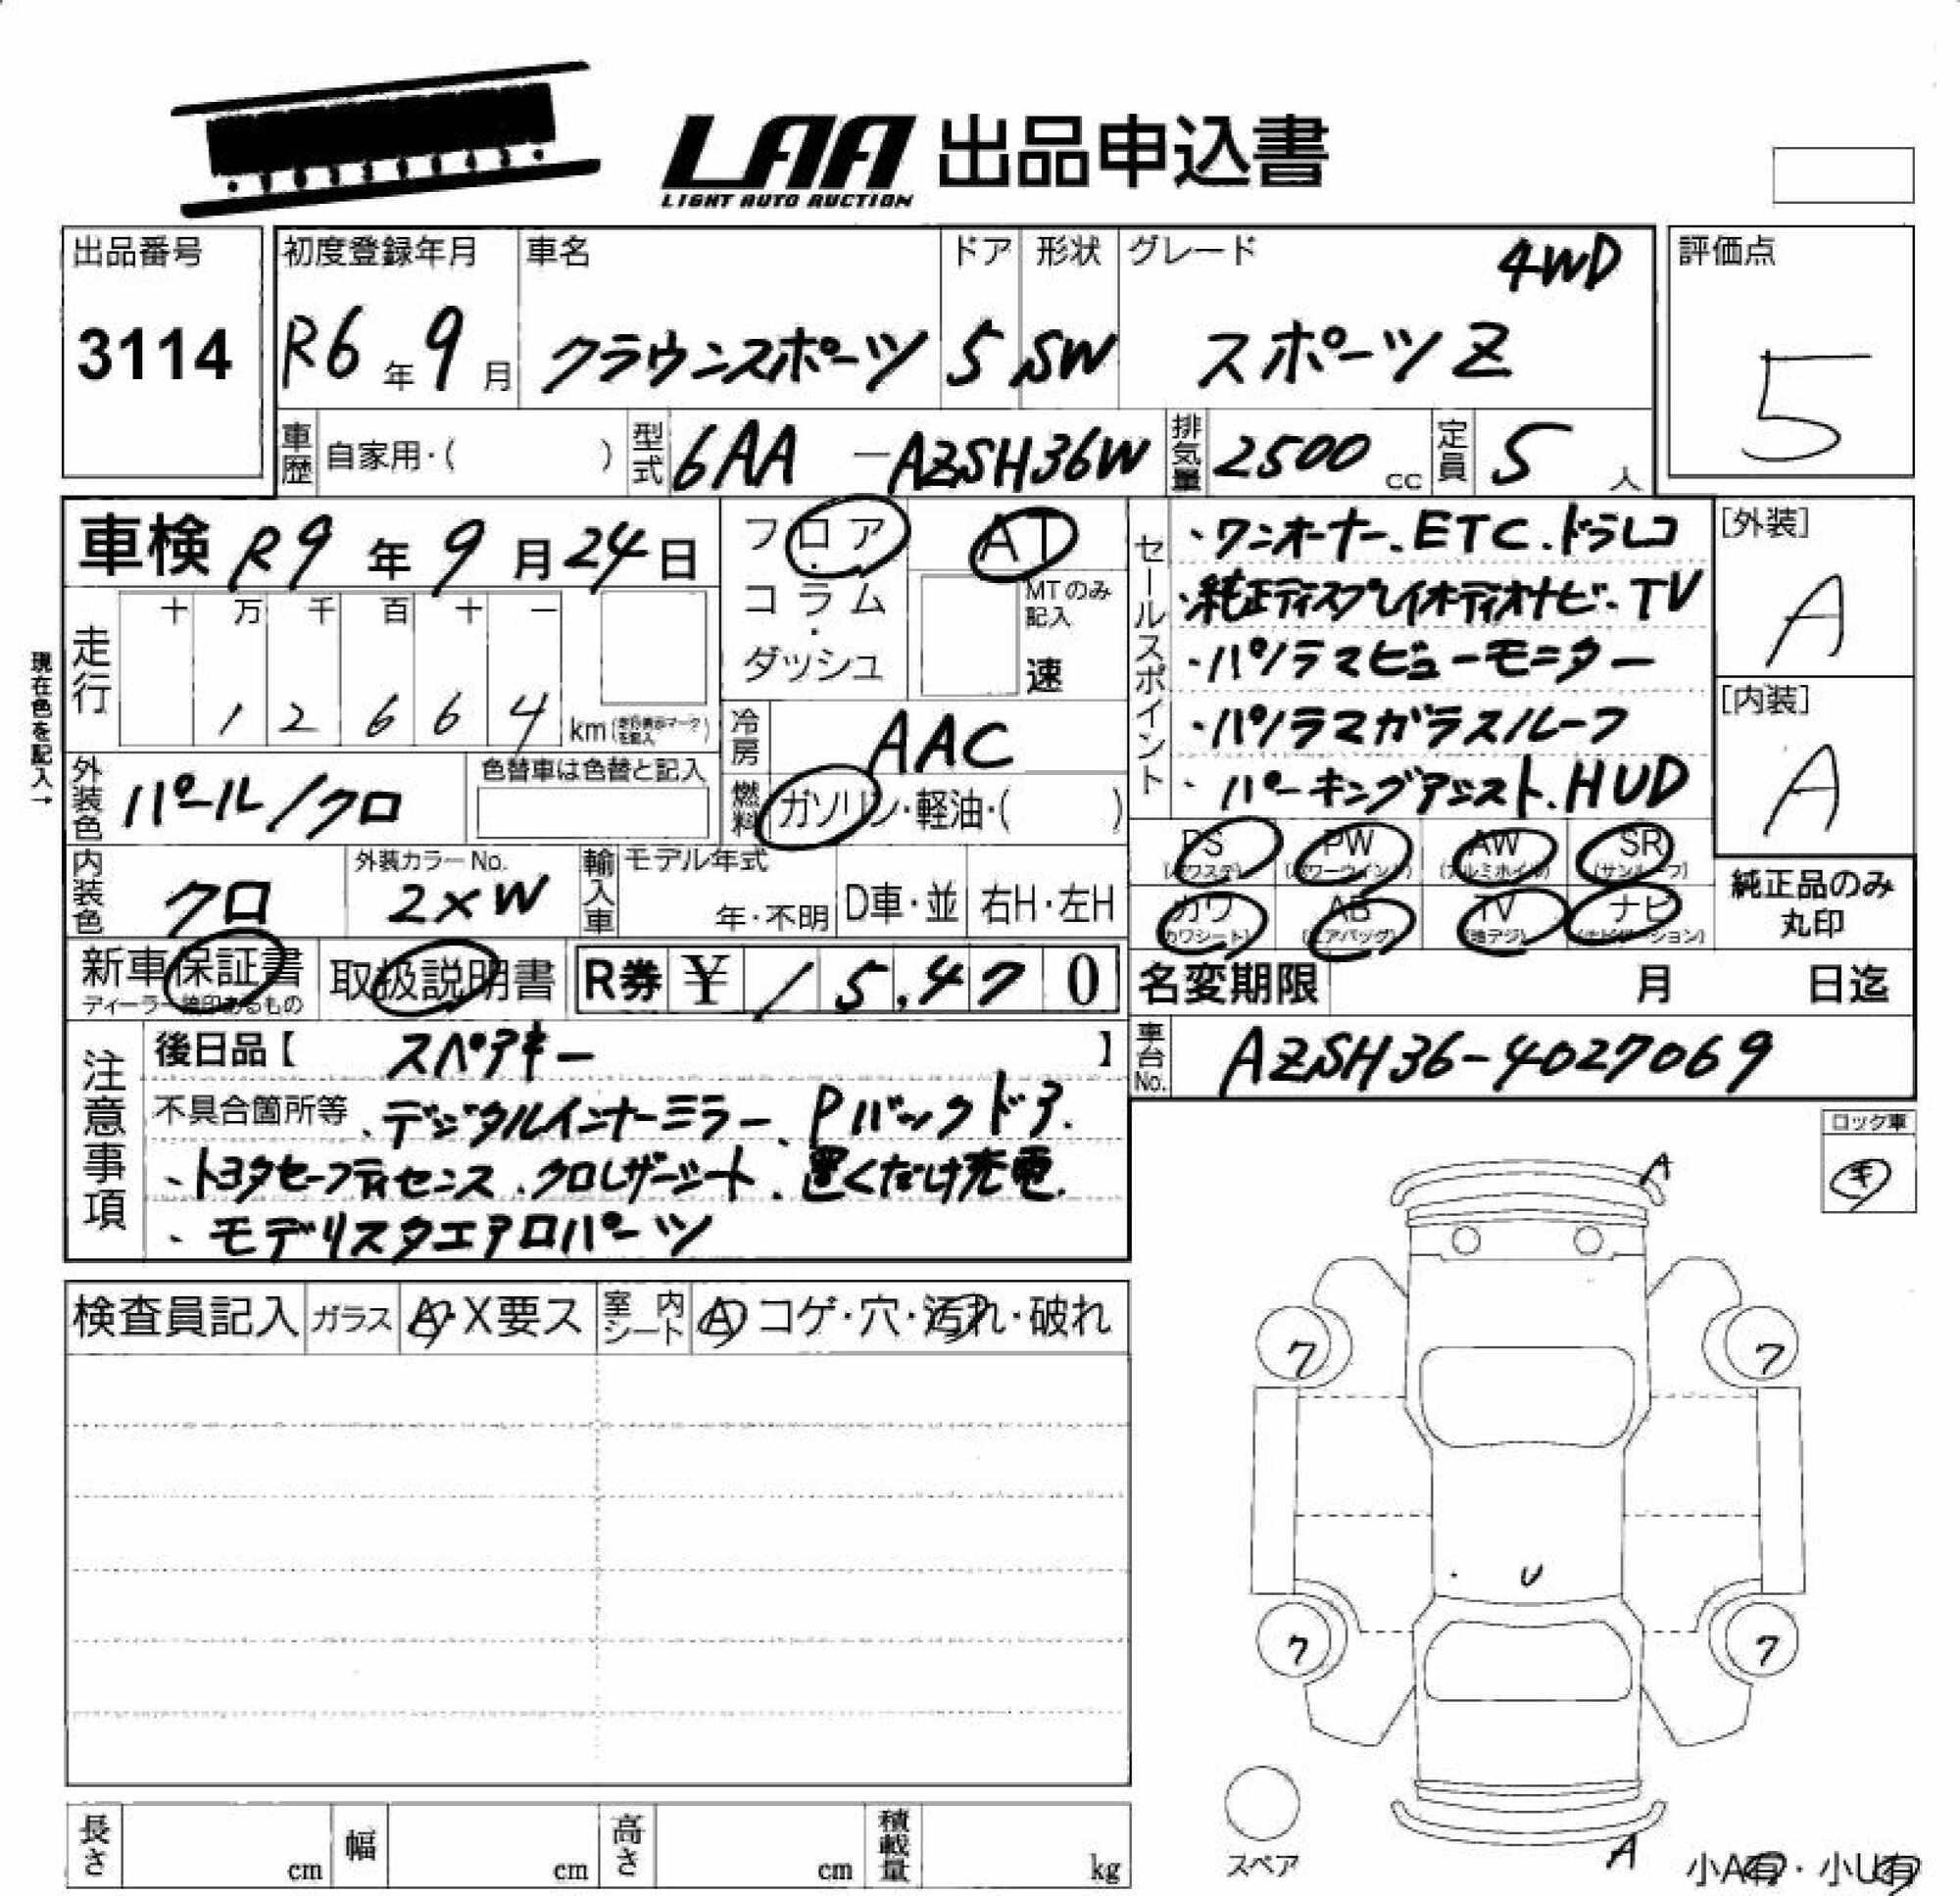 LAA 出品申込書
LIGHT AUTO AUCTION
出品番号
3114
初度登録年月
R6年9月
車名
クラウンスポーツ
ドア
5
形状
SW
グレード
4WD
スポーツZ
評価点
5
車歴 自家用・( )
型式 6AA-AZSH36W
排気量 2500cc
定員 5人
車検 R9年9月24日
フロア・コラム・ダッシュ
AT
MTのみ記入
速
セールスポイント
・ワンオーナー、ETC、ドラレコ
・純正ディスプレイオーディオナビ・TV
・パノラマビューモニター
・パノラマガラスルーフ
・パーキングアシスト、HUD
[外装]
A
[内装]
A
現在色を記入→
走行
十 万 千 百 十 一
1 2 6 6 4 km
冷房 AAC
外装色 パール/クロ
色替車は色替と記入
燃料 ガソリン・軽油・( )
PS PW AW SR
(パワステ) (パワーウインド) (アルミホイル) (サンルーフ)
カワ AB TV ナビ
(カワシート) (エアバッグ) (地デジ) (ナビゲーション)
純正品のみ
丸印
内装色 クロ
外装カラーNo.
2XW
輸入車
モデル年式
年・不明
D車・並
右H・左H
新車保証書
取扱説明書
R券 ¥ 15,470
名変期限 月 日迄
車台No. AZSH36-4027069
注意事項
後日品【 スペアキー 】
不具合箇所等、デジタルインナーミラー、Pバックドア.
、トヨタセーフティセンス、クロレザーシート、置くだけ充電.
、モデリスタエアロパーツ
ロック車
キ
検査員記入
ガラス A・X要ス
室内シート A コゲ・穴・汚れ・破れ
A
7 7
U
7 7
A
スペア
小A有・小U有
長さ cm
幅 cm
高さ cm
積載量 kg